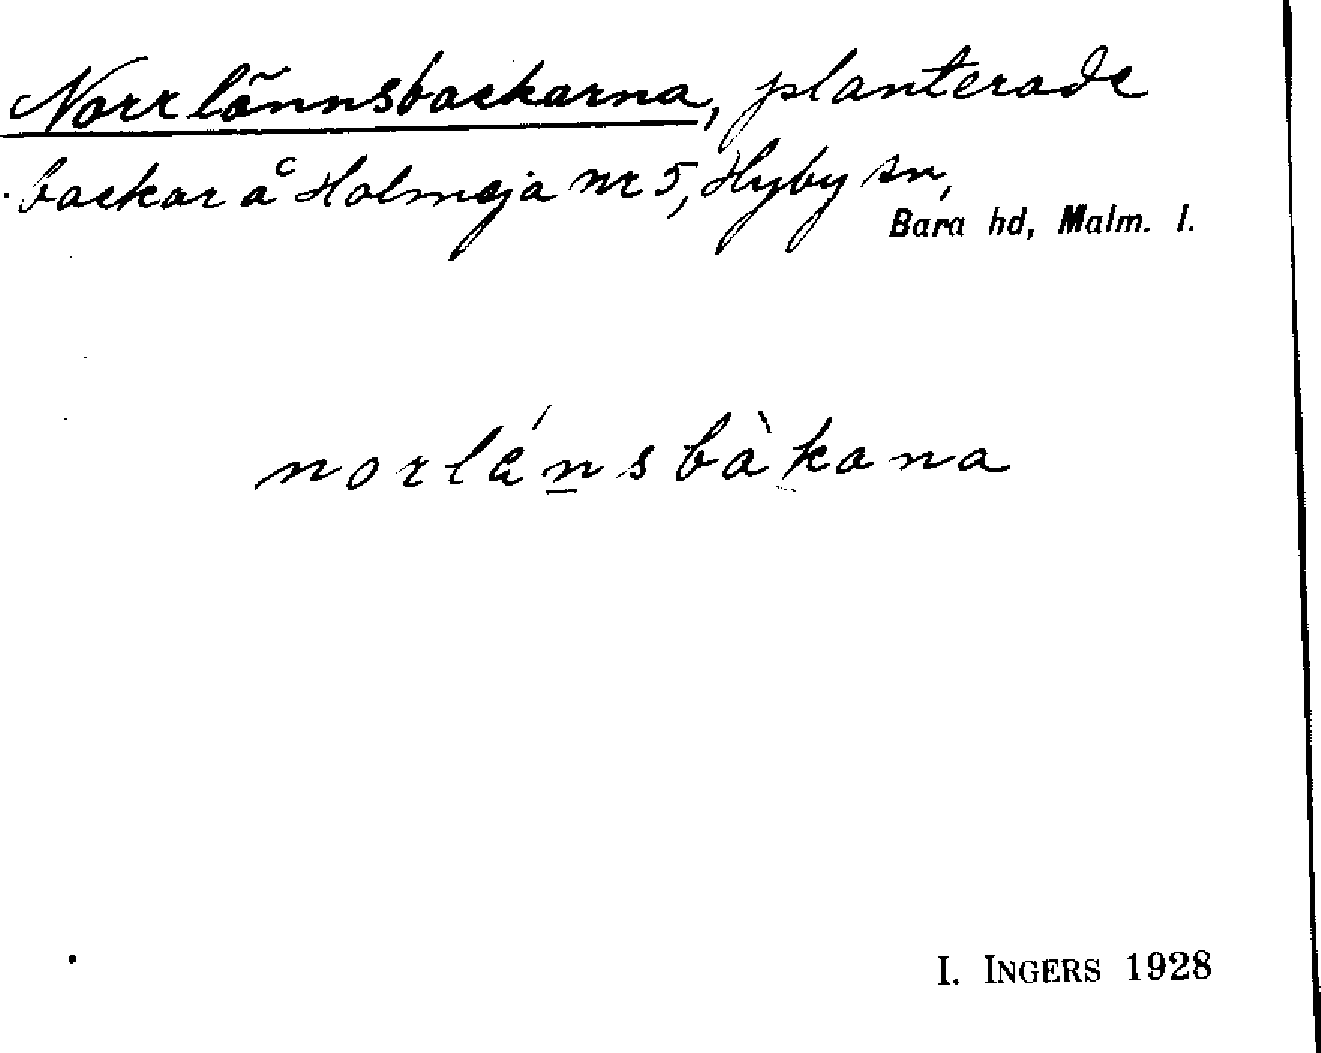 Norrlönnsbackarna, planterade
backar å Holmeja nr 5, Hyby sn,
Bara hd, Malm. l.
norlánsbàkana
I. INGERS 1928